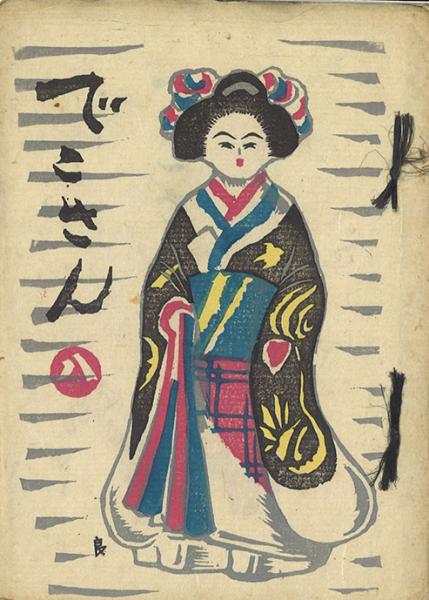 でこさん
八
良